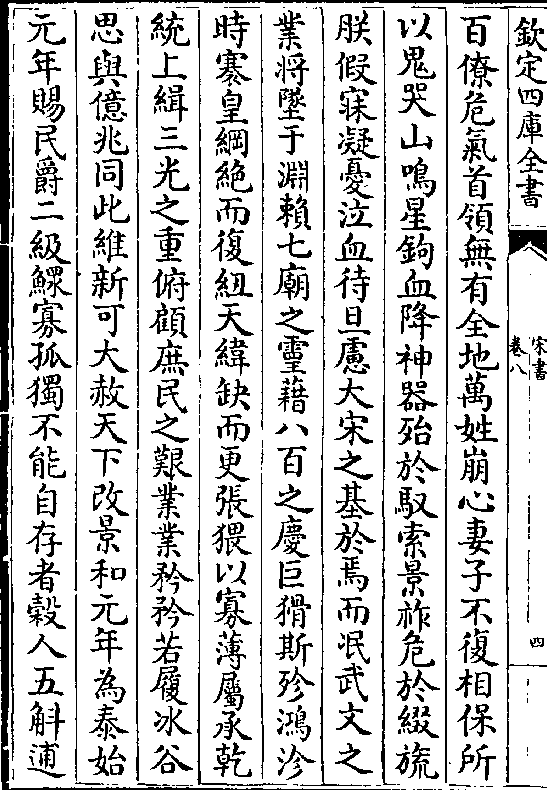 欽定四庫全書
宋書
卷八
四
百僚危氣首領無有全地萬姓崩心妻子不復相保所
以鬼哭山鳴星鉤血降神器殆於馭索景祚危於綴旒
朕假寐凝憂泣血待旦慮大宋之基於焉而泯武文之
業将墜于淵賴七廟之靈藉八百之慶巨猾斯殄鴻沴
時褰皇綱絶而復紐天緯缺而更張猥以寡薄屬承乾
統上緝三光之重俯顧庶民之艱業業矜矜若履冰谷
思與億兆同此維新可大赦天下改景和元年為泰始
元年賜民爵二級鰥寡孤獨不能自存者穀人五斛逋